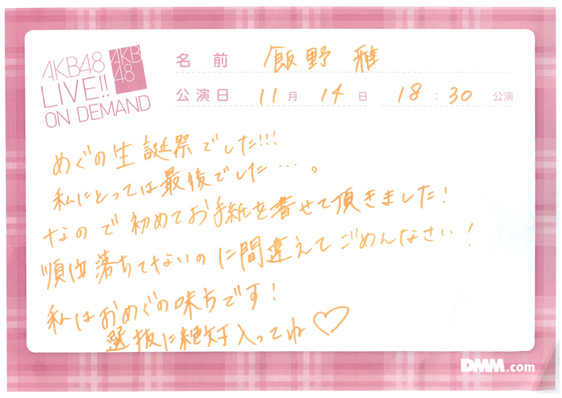 AKB48
LIVE!!
ON DEMAND
AKB
48
名前 飯野 雅
公演日 11月 14日 18:30 公演
めぐの生誕祭でした!!!
私にとっては最後でした…。
なので初めてお手紙を書せて頂きました!
順番落ちてないのに間違えてごめんなさい!
私はおめぐの味方です!
選抜に絶対入ってね♡
DMM.com